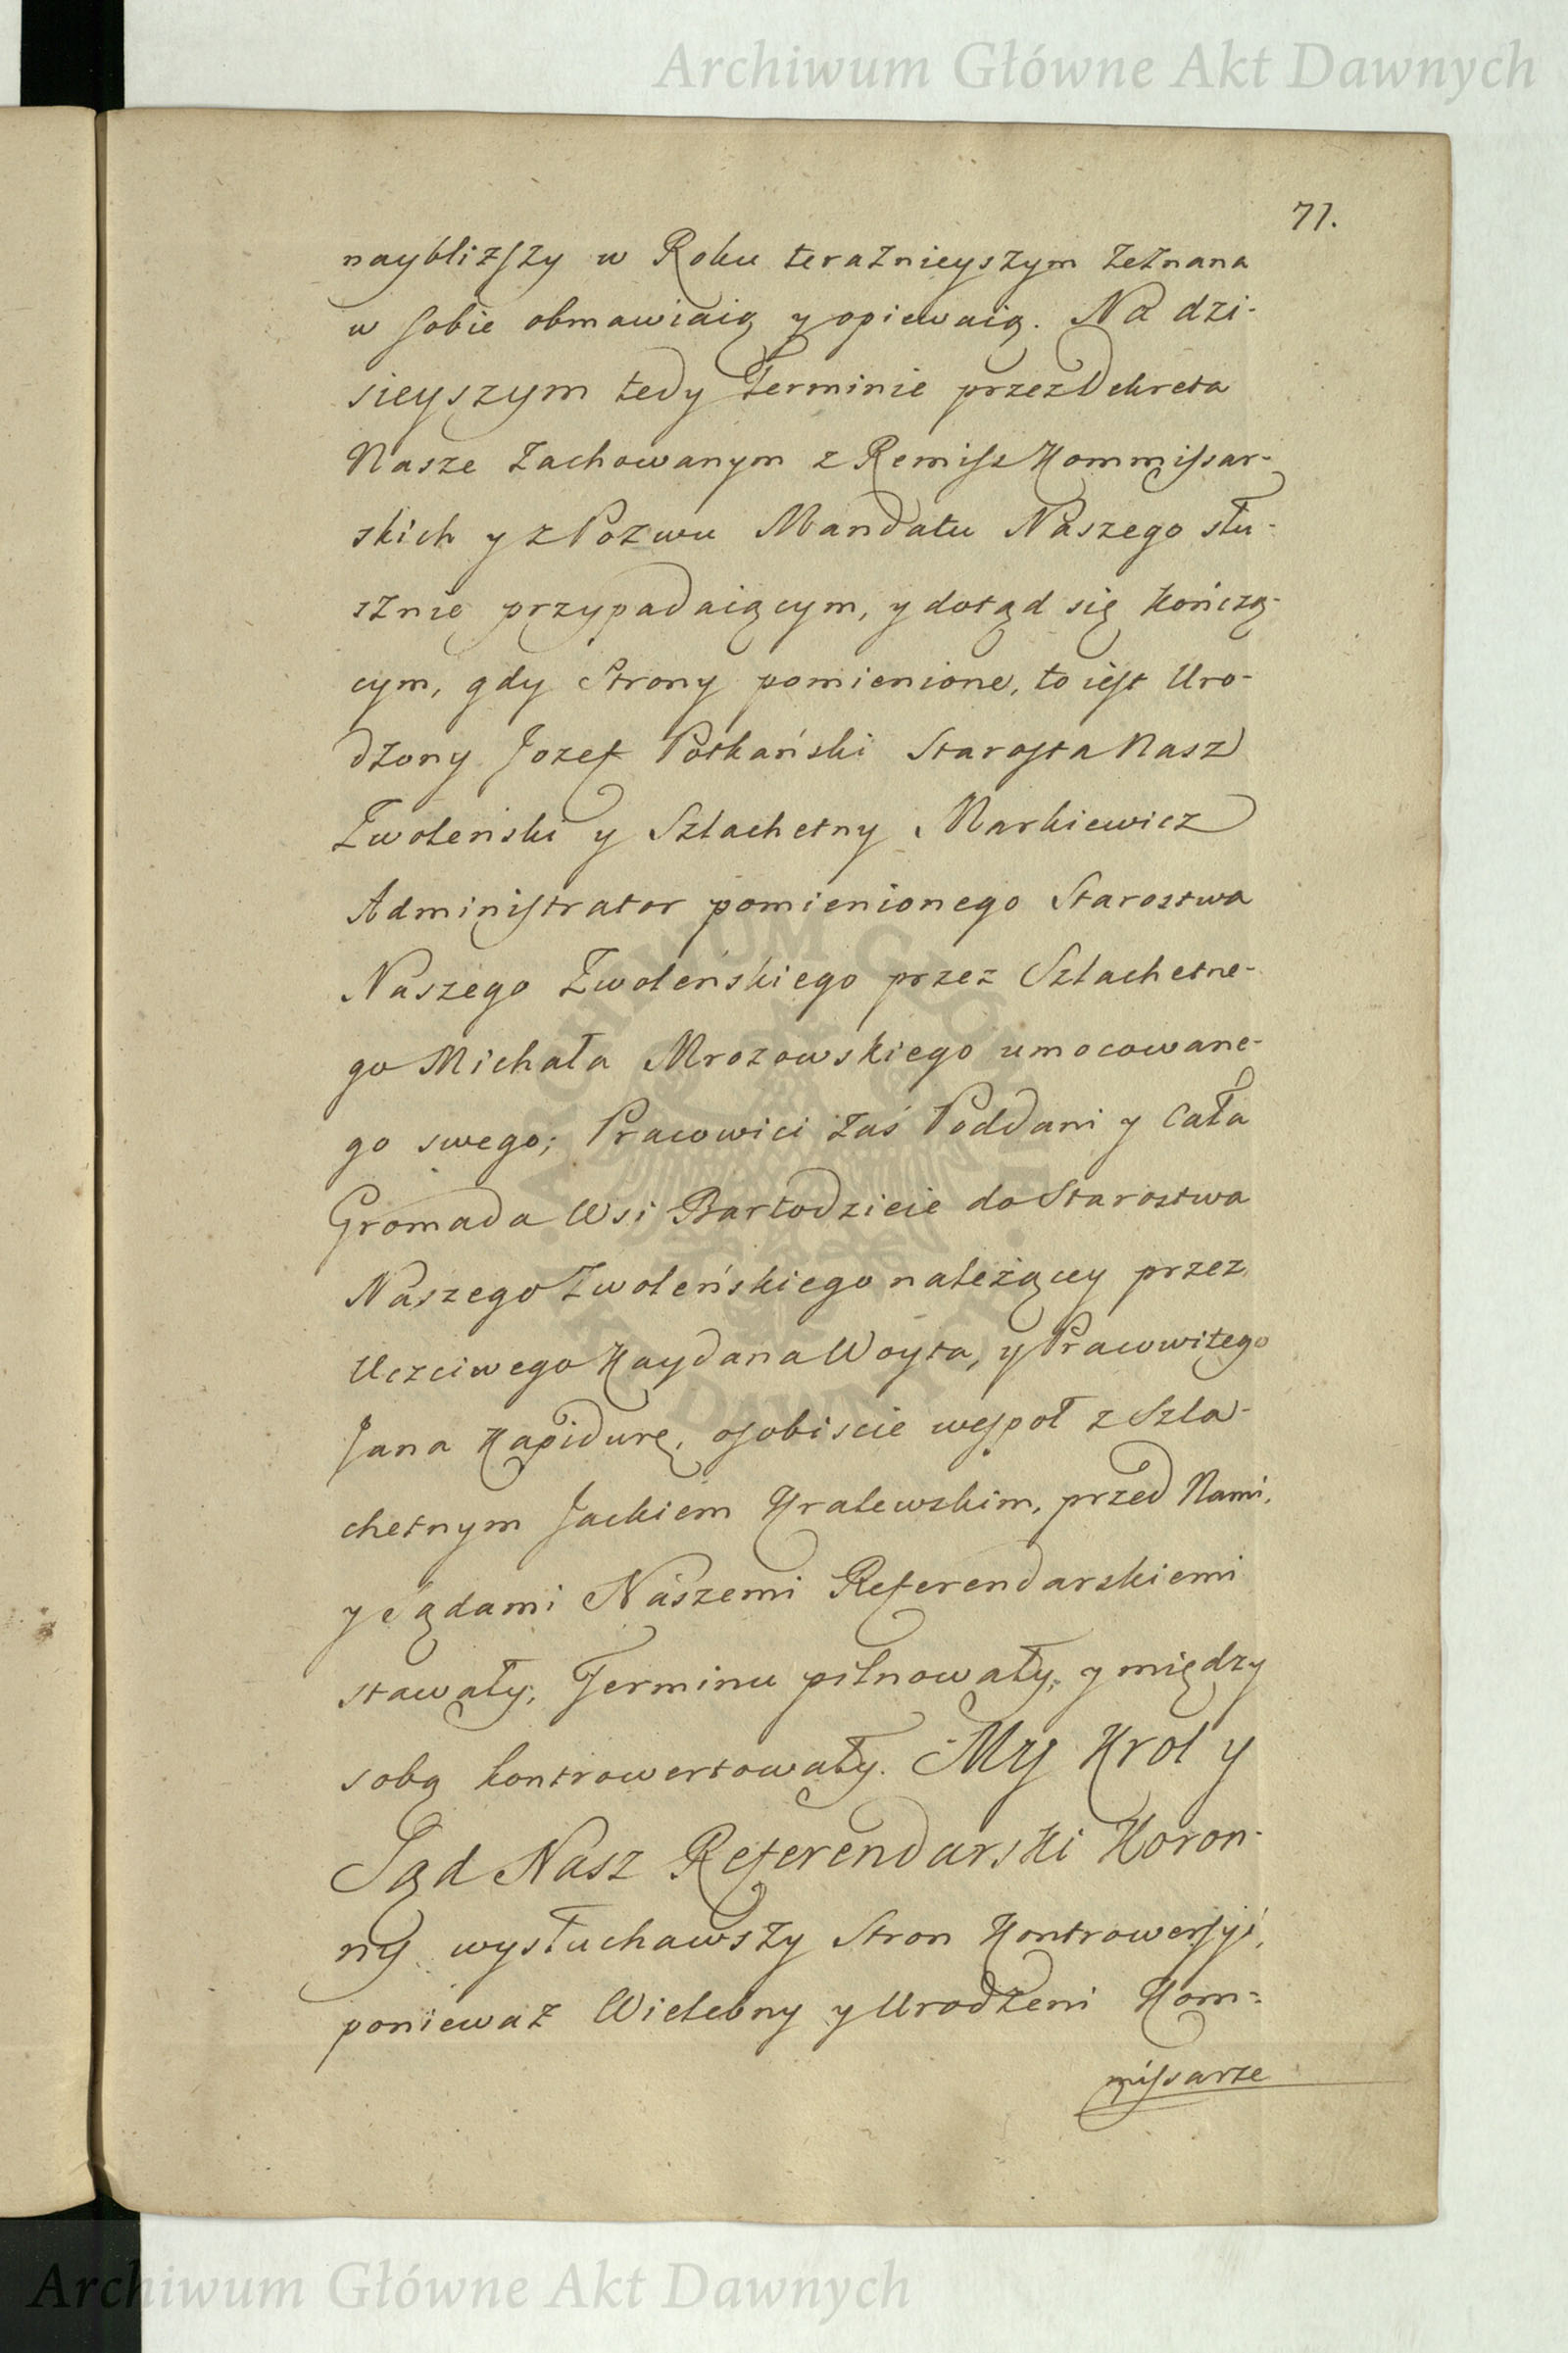 Archiwum Główne Akt Dawnych
71.
naybliższy w Roku teraznieyszym zeznana
w sobie obmawiaią y opiewaią. Na dzi-
sieyszym tedy Terminie przez Dekreta
Nasze zachowanym z Remiss Kommissar-
skich y z Pozwu Mandatu Naszego słu-
sznie przypadaiącym, y dotąd się kończą-
cym, gdy Strony pomienione, to iest Uro-
dzony Jozef Potkański Starosta Nasz
Zwoleński y Szlachetny Markiewicz
Administrator pomienionego Starostwa
Naszego Zwoleńskiego przez Szlachetne-
go Michała Mrozowskiego umocowane-
go swego; Pracowici zaś Poddani y Cała
Gromada Wsi Bartodzieie do Starostwa
Naszego Zwoleńskiego należącey przez
Uczciwego Kaydana Woyta, y Pracowitego
Jana Kapidurę, osobiscie wespoł z Szla-
chetnym Jackiem Kralewskim, przed Nami,
y Sądami Naszemi Referendarskiemi
stawały, Terminu pilnowały, y między
sobą kontrowertowały. My Krol y
Sąd Nasz Referendarski Koron-
ny wysłuchawszy Stron Kontrowersyi,
ponieważ Wielebny y Urodzeni Kom=
missarze
ARCHIWUM GŁÓWNE AKT DAWNYCH
Archiwum Główne Akt Dawnych